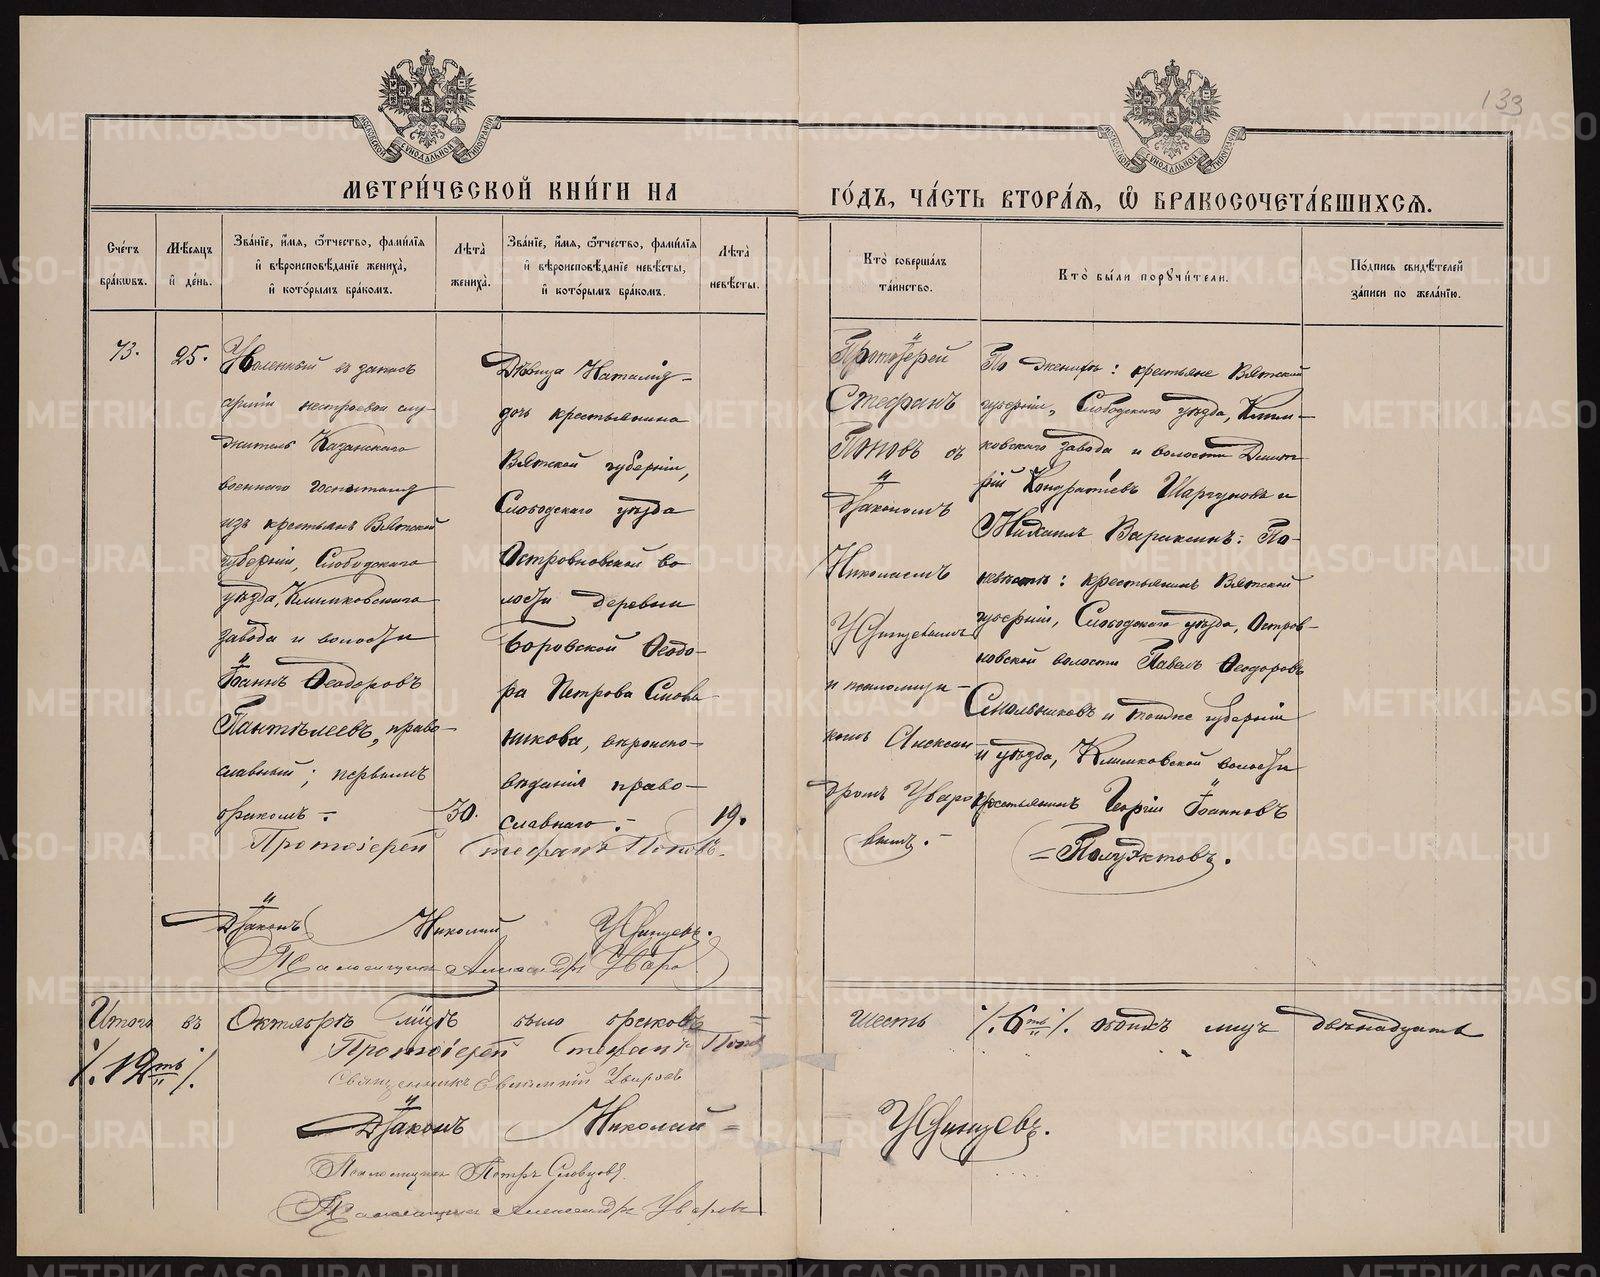 133
МЕТРИ́ЧЕСКОЙ КНИ́ГИ НА
ГО́ДЪ, ЧА́СТЬ ВТОРА́Ѧ, Ѽ БРАКОСОЧЕТА́ВШИХСѦ.
Сче́тъ бра́кѡвъ.
Мѣ́сѧцъ и҆ де́нь.
Зва́нїе, и҆́мѧ, ѻ҆́тчество, фамѝлїѧ и҆ вѣроисповѣ́данїе жениха̀, и҆ кото́рымъ бра́комъ.
Лѣ́та жениха̀.
Зва́нїе, и҆́мѧ, ѻ҆́тчество, фамѝлїѧ и҆ вѣроисповѣ́данїе невѣ́сты, и҆ кото́рымъ бра́комъ.
Лѣ́та невѣ́сты.
Кто̀ соверша́лъ та́инство.
Кто̀ бы́ли порꙋчи́тели.
По́дпись свидѣ́телей за́писи по жела́нїю.
73.
25.
Уволенный въ запасъ
арміи нестроевой слу-
житель Казанскаго
военнаго госпиталя
изъ крестьянъ Вятской
губерніи, Слободскаго
уѣзда, Климковскаго
завода и волости
Іоаннъ Ѳеодоровъ
Пантѣлеевъ, право-
славный; первымъ
бракомъ.-
30.
Дѣвица Наталія -
дочь крестьянина
Вятской губерніи,
Слободскаго уѣзда
Островновской во
лости деревни
Боровской Ѳеодо-
ра Петрова Смоль
никова, вѣроиспо-
вѣданія право-
славнаго.-
19.
Протоіерей
Стефанъ
Поповъ съ
діакономъ
Николаемъ
и псаломщи-
комъ Алексан
дромъ Уваро
вымъ.-
По женихѣ: крестьяне Вятской
губерніи, Слободскаго уѣзда, Клим-
ковскаго завода и волости Димит
рій Кондратіевъ Шаргуновъ и
Михаилъ Вараксинъ: По
невѣстѣ: крестьянинъ Вятской
губерніи, Слободскаго уѣзда, Остров-
новской волости Павелъ Ѳеодоровъ
Смольниковъ и тойже губерніи
и уѣзда, Климковской волости
крестьянинъ Георгій Іоанновъ
=Полуэктовъ.
Протоіерей Стефанъ Поповъ.
Діаконъ Николай
Псаломщикъ Александръ Уваро
Итого въ Октябрѣ мцѣ было браковъ =
шесть ./.6ть./. обоихъ лицъ двѣнадцать
./.12ть./.
Протоіерей Стефанъ Попов
Священникъ Евѳимій Уваровъ
Діаконъ Николай =
Псаломщикъ Петръ Словцовъ
Псаломщикъ Александръ Уваровъ
METRIKI.GASO-URAL.RU